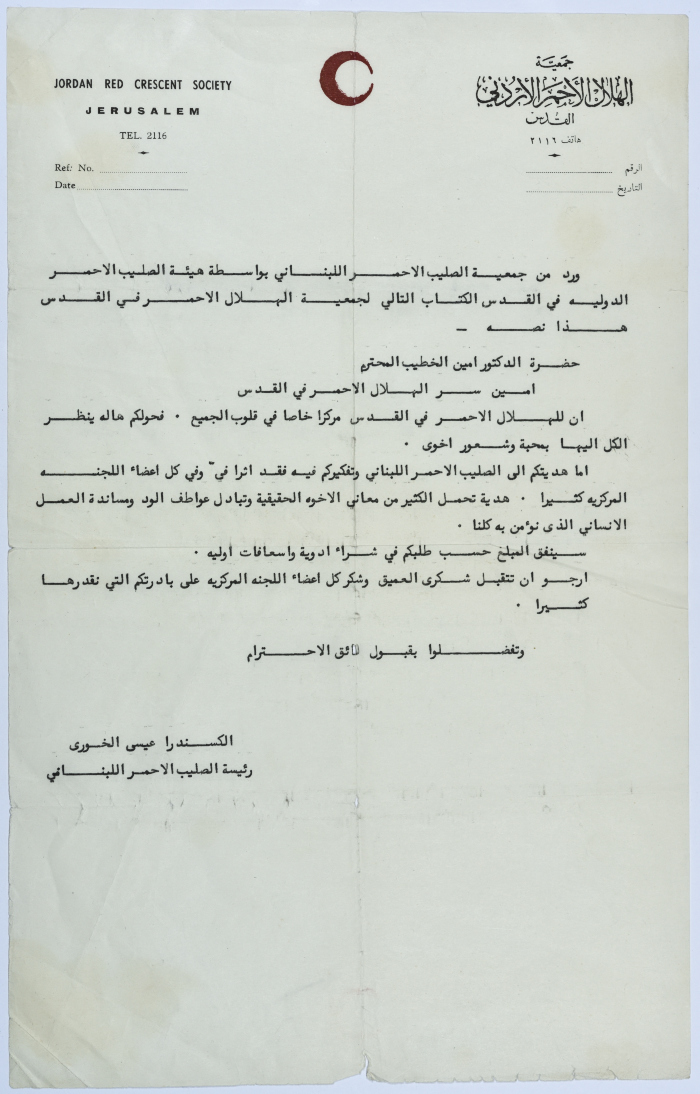 JORDAN RED CRESCENT SOCIETY
JERUSALEM
TEL. 2116
Ref: No.
Date
جمعية
الهلال الأحمر الأردني
القدس
هاتف ٢١١٦
الرقم
التاريخ
ورد من جمعية الصليب الاحمر اللبناني بواسطة هيئة الصليب الاحمر
الدوليه في القدس الكتاب التالي لجمعية الهلال الاحمر في القدس
هذا نصه –
حضرة الدكتور امين الخطيب المحترم
امين سر الهلال الاحمر في القدس
ان للهلال الاحمر في القدس مركزا خاصا في قلوب الجميع . فحولكم هاله ينظر
الكل اليها بمحبة وشعور اخوى .
اما هديتكم الى الصليب الاحمر اللبناني وتفكيركم فيه فقد اثرا فيّ وفي كل اعضاء اللجنه
المركزيه كثيرا . هدية تحمل الكثير من معاني الاخوه الحقيقية وتبادل عواطف الود ومساندة العمل
الانساني الذى نؤمن به كلنا .
سينفق المبلغ حسب طلبكم في شراء ادوية واسعافات اوليه .
ارجو ان تتقبل شكرى العميق وشكر كل اعضاء اللجنه المركزيه على بادرتكم التي نقدرها
كثيرا .
وتفضلوا بقبول فائق الاحترام
الكسندرا عيسى الخورى
رئيسة الصليب الاحمر اللبناني